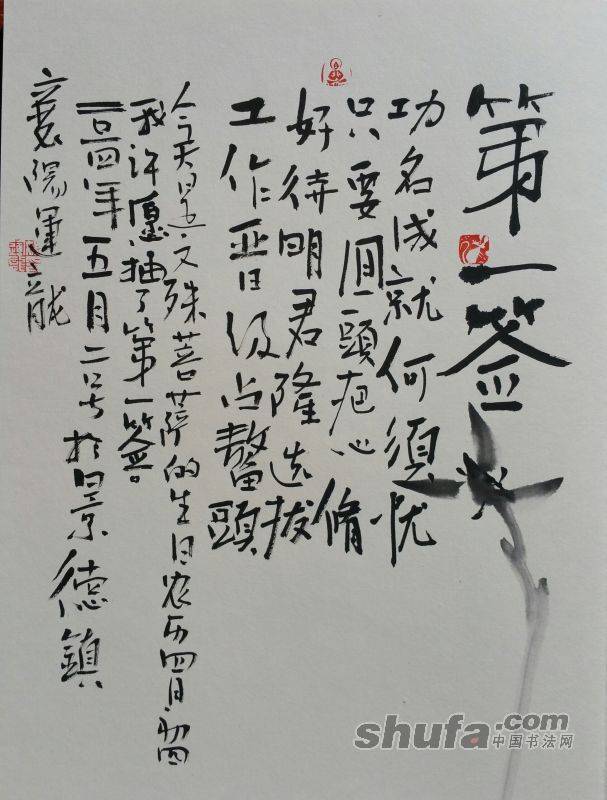 第一签
功名成就何須忧
只要回頭心脩
好待明君隆选拔
工作晋级占鳌頭
今天是文殊菩萨的生日农历四月初四
我许愿抽了第一签
二〇一四年五月二号於景德鎮
襄陽運龍
shufa.com
中国书法网